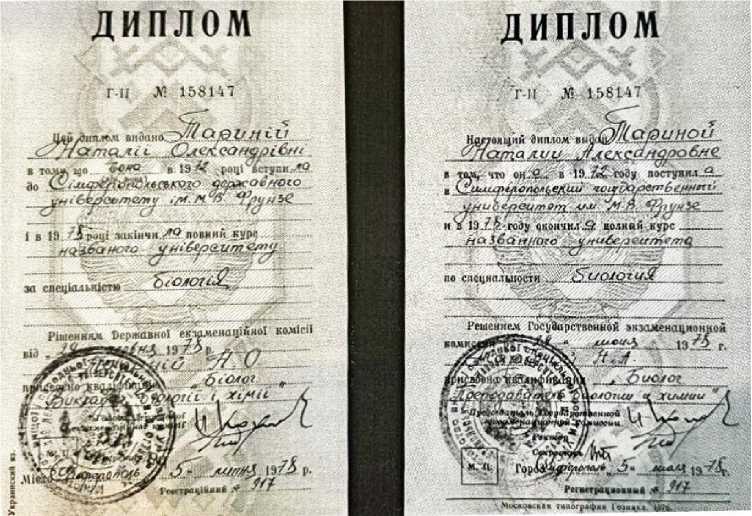 ДИПЛОМ
Г-II № 158147
Цей диплом видано Тариній
Наталії Олександрівні
в тому, що вона в 1972 році вступила
до Сімферопольського державного
університету ім. М.В. Фрунзе
і в 1978 році закінчила повний курс
названого університету
за спеціальністю біологія
Рішенням Державної екзаменаційної комісії
від 1978 р.
Н.О
присвоєно кваліфікацію Біолог
Викладач біології і хімії
Місто Сімферополь 5 липня 1978 р.
Регстраційний № 917
Украинский яз.
ДИПЛОМ
Г-II № 158147
Настоящий диплом выдан Тариной
Наталии Александровне
в том, что она в 1972 году поступила
в Симферопольский государственный
университет им. М.В. Фрунзе
и в 1978 году окончила полный курс
названного университета
по специальности биология
Решением Государственной экзаменационной
комиссии 1978 г.
Н.А.
присвоена квалификация Биолог
Преподаватель биологии и химии
Председатель Государственной
экзаменационной комиссии
Ректор
Секретарь
М. П. Город Симферополь 5 июля 1978 г.
Регистрационный № 917
Московская типография Гознака.